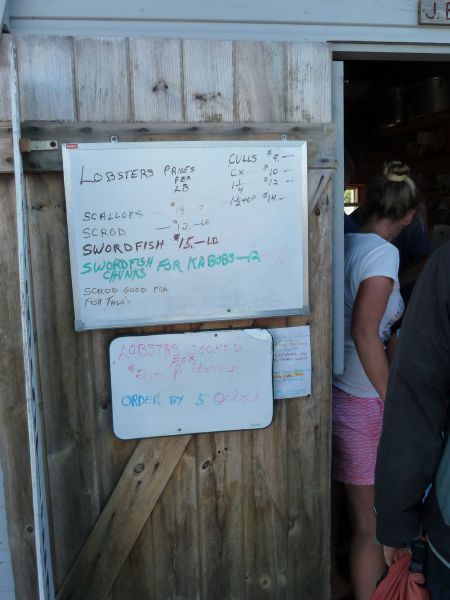 J. B
LOBSTERS PRICES
PER
LB
CULLS $9.—
CX $10 —
1 1/4 $12 —
$14.—
SCALLOPS — $19. —
SCROD — $12. — LB
SWORDFISH $15. — LB
SWORDFISH FOR KABOBS — 12
CHUNKS
SCROD GOOD FOR
FISH TACO'S
LOBSTERS COOKED
FOR
$2 —
ORDER BY 5 Oclock